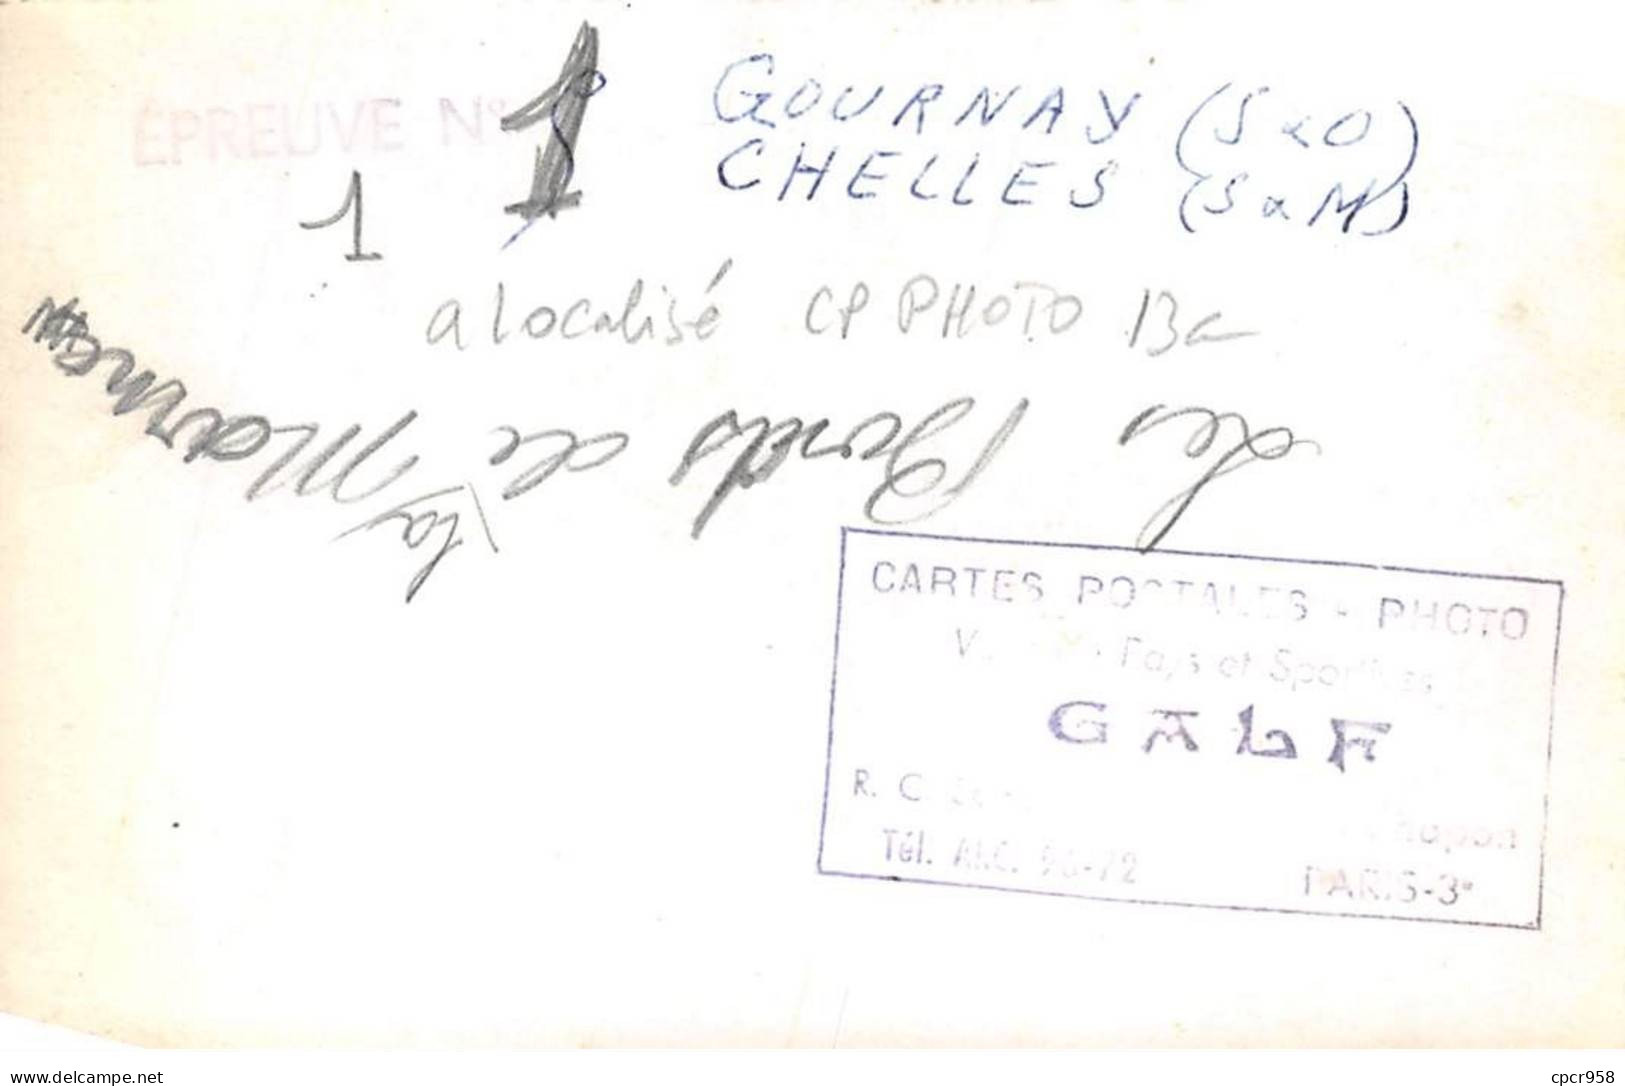 ÉPREUVE N° 1
GOURNAY (S & O)
CHELLES (S & M)
1
a localisé CP PHOTO
Les Bords de la Marne
CARTES POSTALES - PHOTO
Pays et Sportives
GALF
R. C.
Tél. ARC. 96-72
PARIS-3e
www.delcampe.net
cpcr958